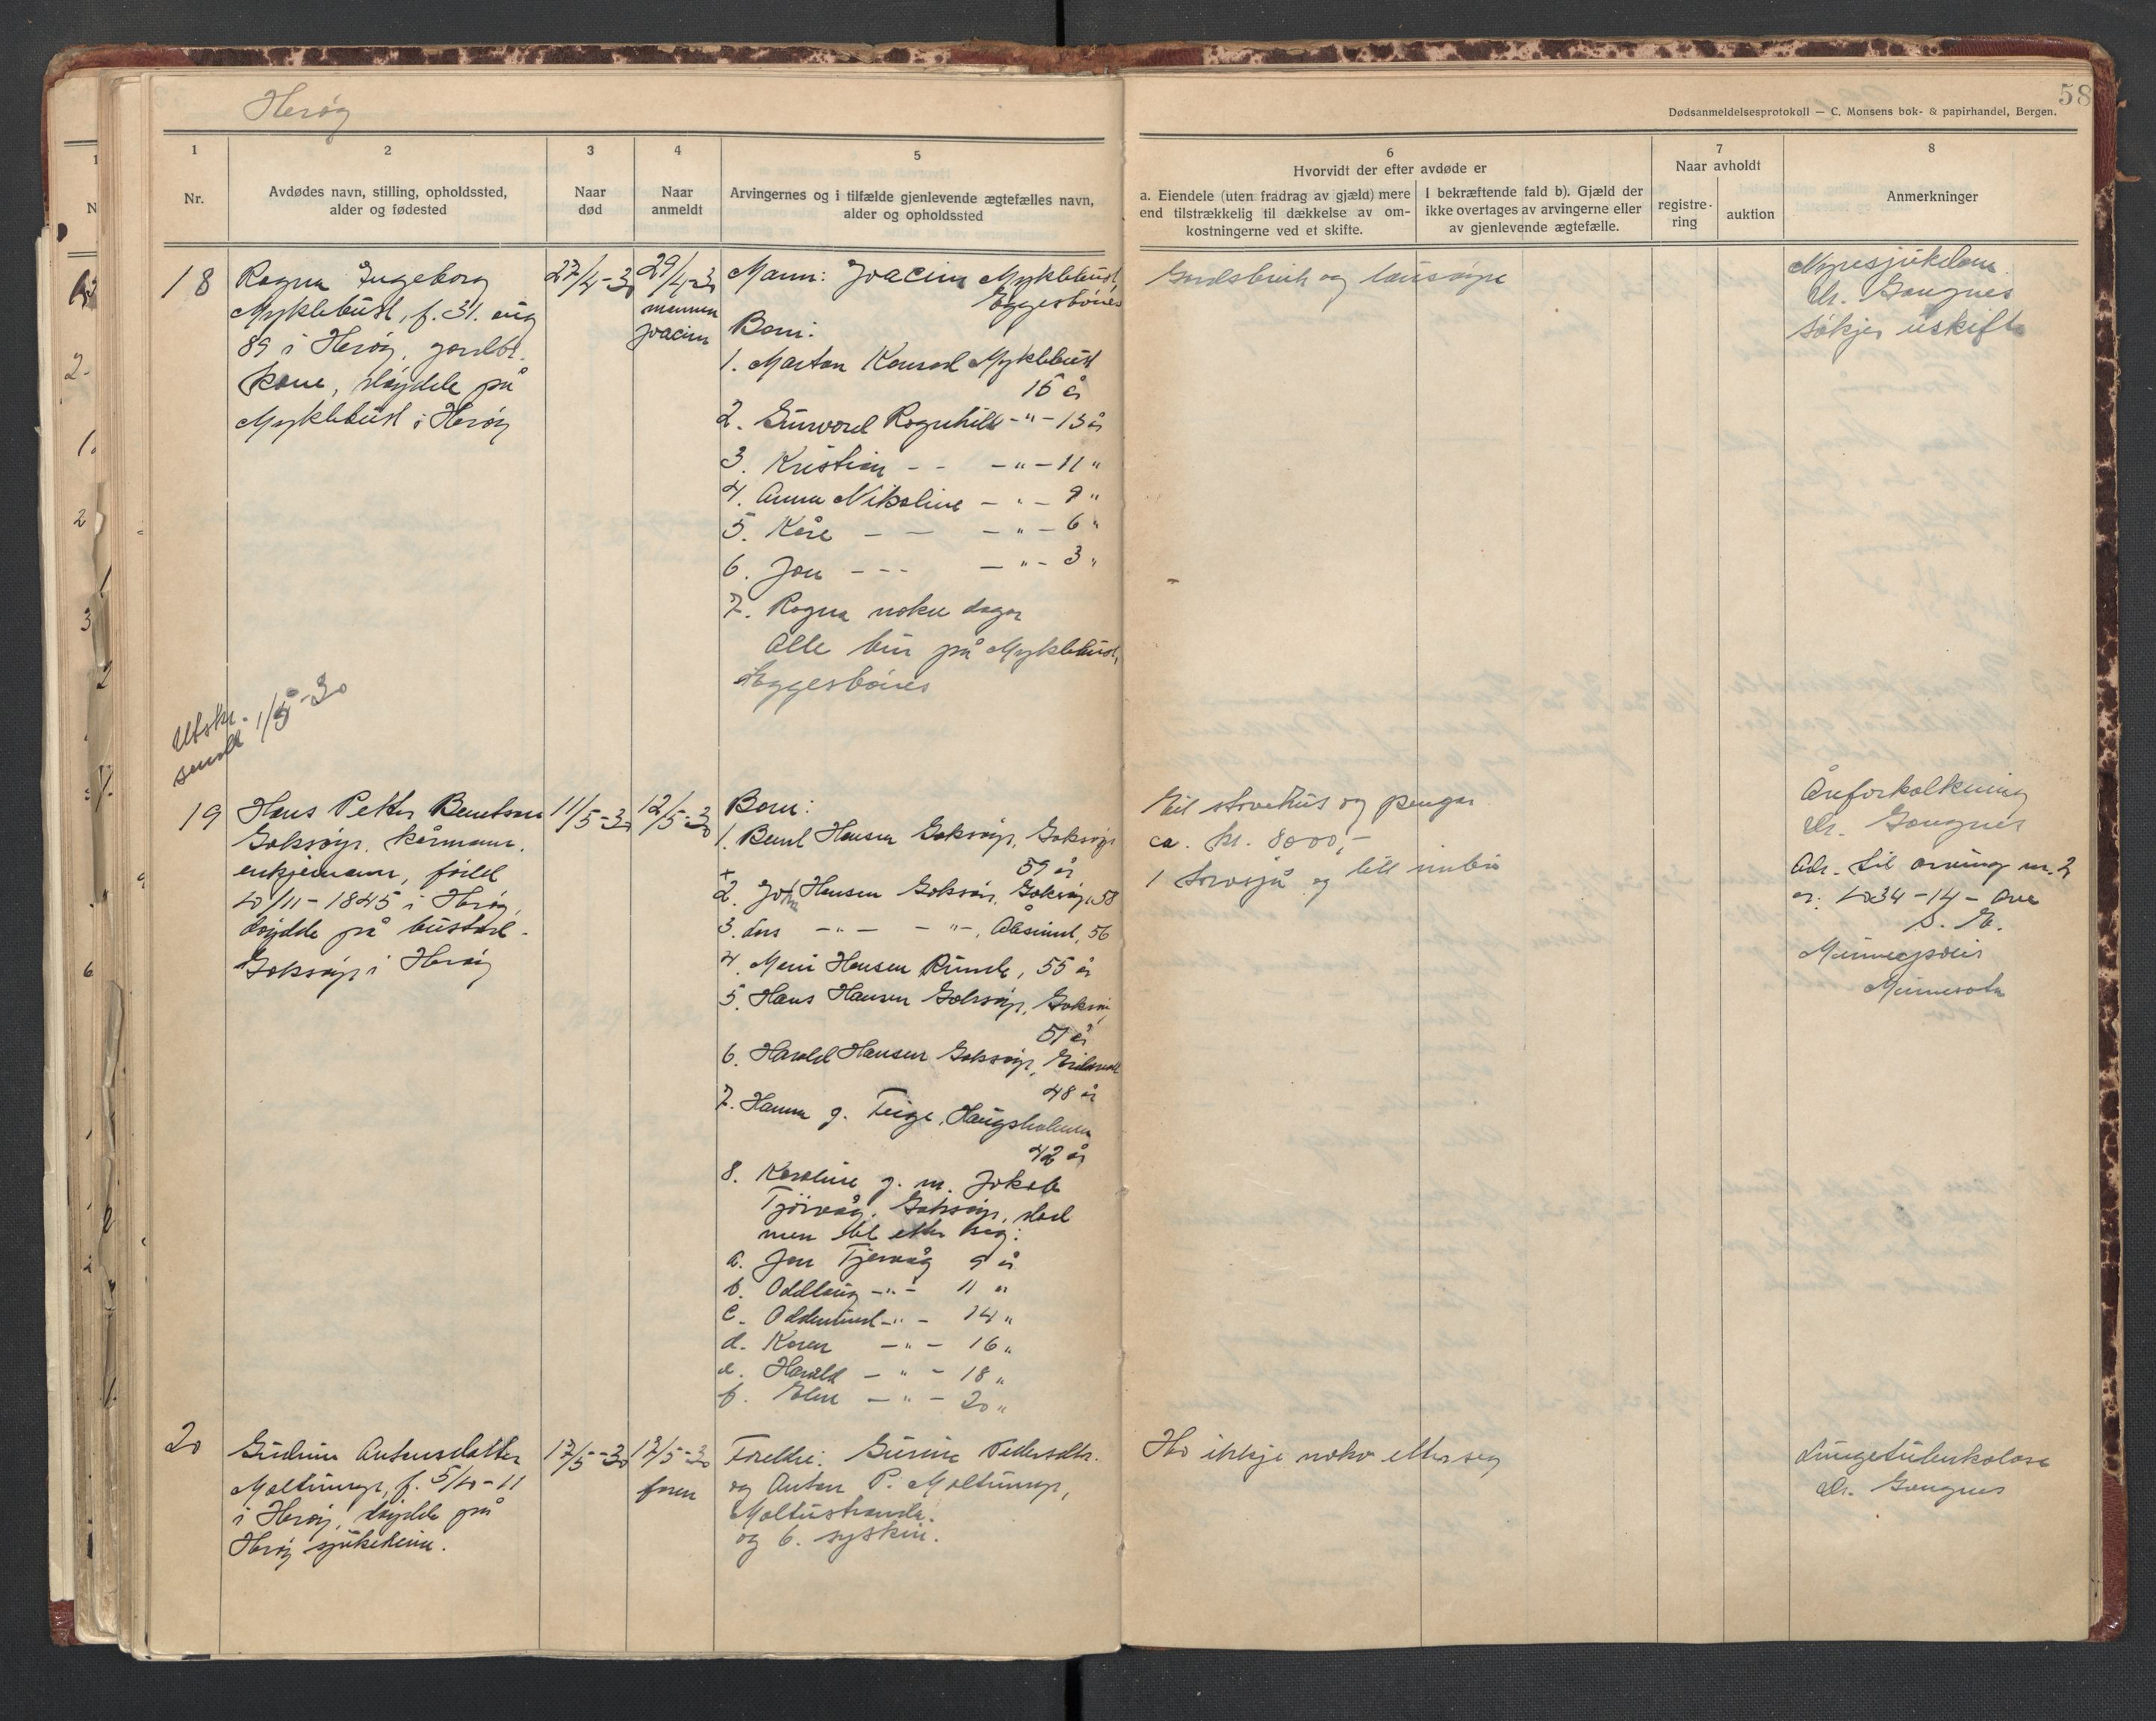 Herøy
58
Dødsanmeldelsesprotokoll — C. Monsens bok- & papirhandel, Bergen.
1
Nr.
2
Avdødes navn, stilling, opholdssted,
alder og fødested
3
Naar
død
4
Naar
anmeldt
5
Arvingernes og i tilfælde gjenlevende ægtefælles navn,
alder og opholdssted
6
Hvorvidt der efter avdøde er
a. Eiendele (uten fradrag av gjæld) mere
end tilstrækkelig til dækkelse av om-
kostningerne ved et skifte.
I bekræftende fald b). Gjæld der
ikke overtages av arvingerne eller
av gjenlevende ægtefælle.
7
Naar avholdt
registre-
ring
auktion
8
Anmerkninger
18
Ragna Ingeborg
Myklebust, f. 31. aug
89 i Herøy, gardbr.
kone, døydde på
Myklebust i Herøy
27/4-30
29/4-30
mannen
Joacim
Mann: Joacim Myklebust,
Eggesbönes
Born:
1. Marton Konrad Myklebust
15 år
2. Gunvord Ragnhild -"- 13 år
3. Kristian - - -"- 11 "
4. Anna Nikoline -"- 9 "
5. Kåre - - -"- 6 "
6. Jon - - - -"- 3 "
7. Ragna noku dagar
Alle bur på Myklebust,
Eggesbönes
Gardsbruk og lausøyre
Nyresjukdom
Dr. Gangnes
Søkjer uskifte
Utskr.
sendt 1/5-30
19
Hans Petter Berntsen
Goksøyr, kårmann,
enkjemann, født
20/11-1845 i Herøy,
døydde på bustad
Goksøyr i Herøy
11/5-30
12/5-30
Born:
1. Bernt Hansen Goksøyr, Goksøyr
59 år
+
2. Hansen Goksøyr, Goksøyr, 58
3. Lars -"- -"-, Ålesund, 56
4. Hansen Runde, 55 år
5. Hans Hansen Goksøyr, Goksøy
51 år
6. Harald Hansen Goksøyr,
48 år
7. Hanna g. Teige, Haugsholmen
42 år
8. Karoline g. m. Jakob
Tjörvåg, Goksøyr, død
men let etter seg:
a. Jon Tjørvåg 9 år
b. Oddlaug -"- 11 "
c. -"- 14 "
d. Karen -"- 16 "
e. Harald -"- 18 "
f. -"- 20 "
Eit stovehus og pengar
ca. kr. 8000,-
1 og litt innbu
Åreforkalkning
Dr. Gangnes
Adr. til arving nr. 2
er: 34-14- Ave
S. E.
Minneapolis
Minnesota
20
Gudrun Antonsdatter
Moltumyr, f. 5/10-11
i Herøy, døydde på
Herøy sjukeheim.
17/5-30
17/5-30
faren
Foreldre: Gurine Pedersdtr.
og Anton P. Moltumyr,
Moltustranda.
og 6. syskin.
Ho ikkje noko etter seg
Lungetuberkolose
Dr. Gangnes